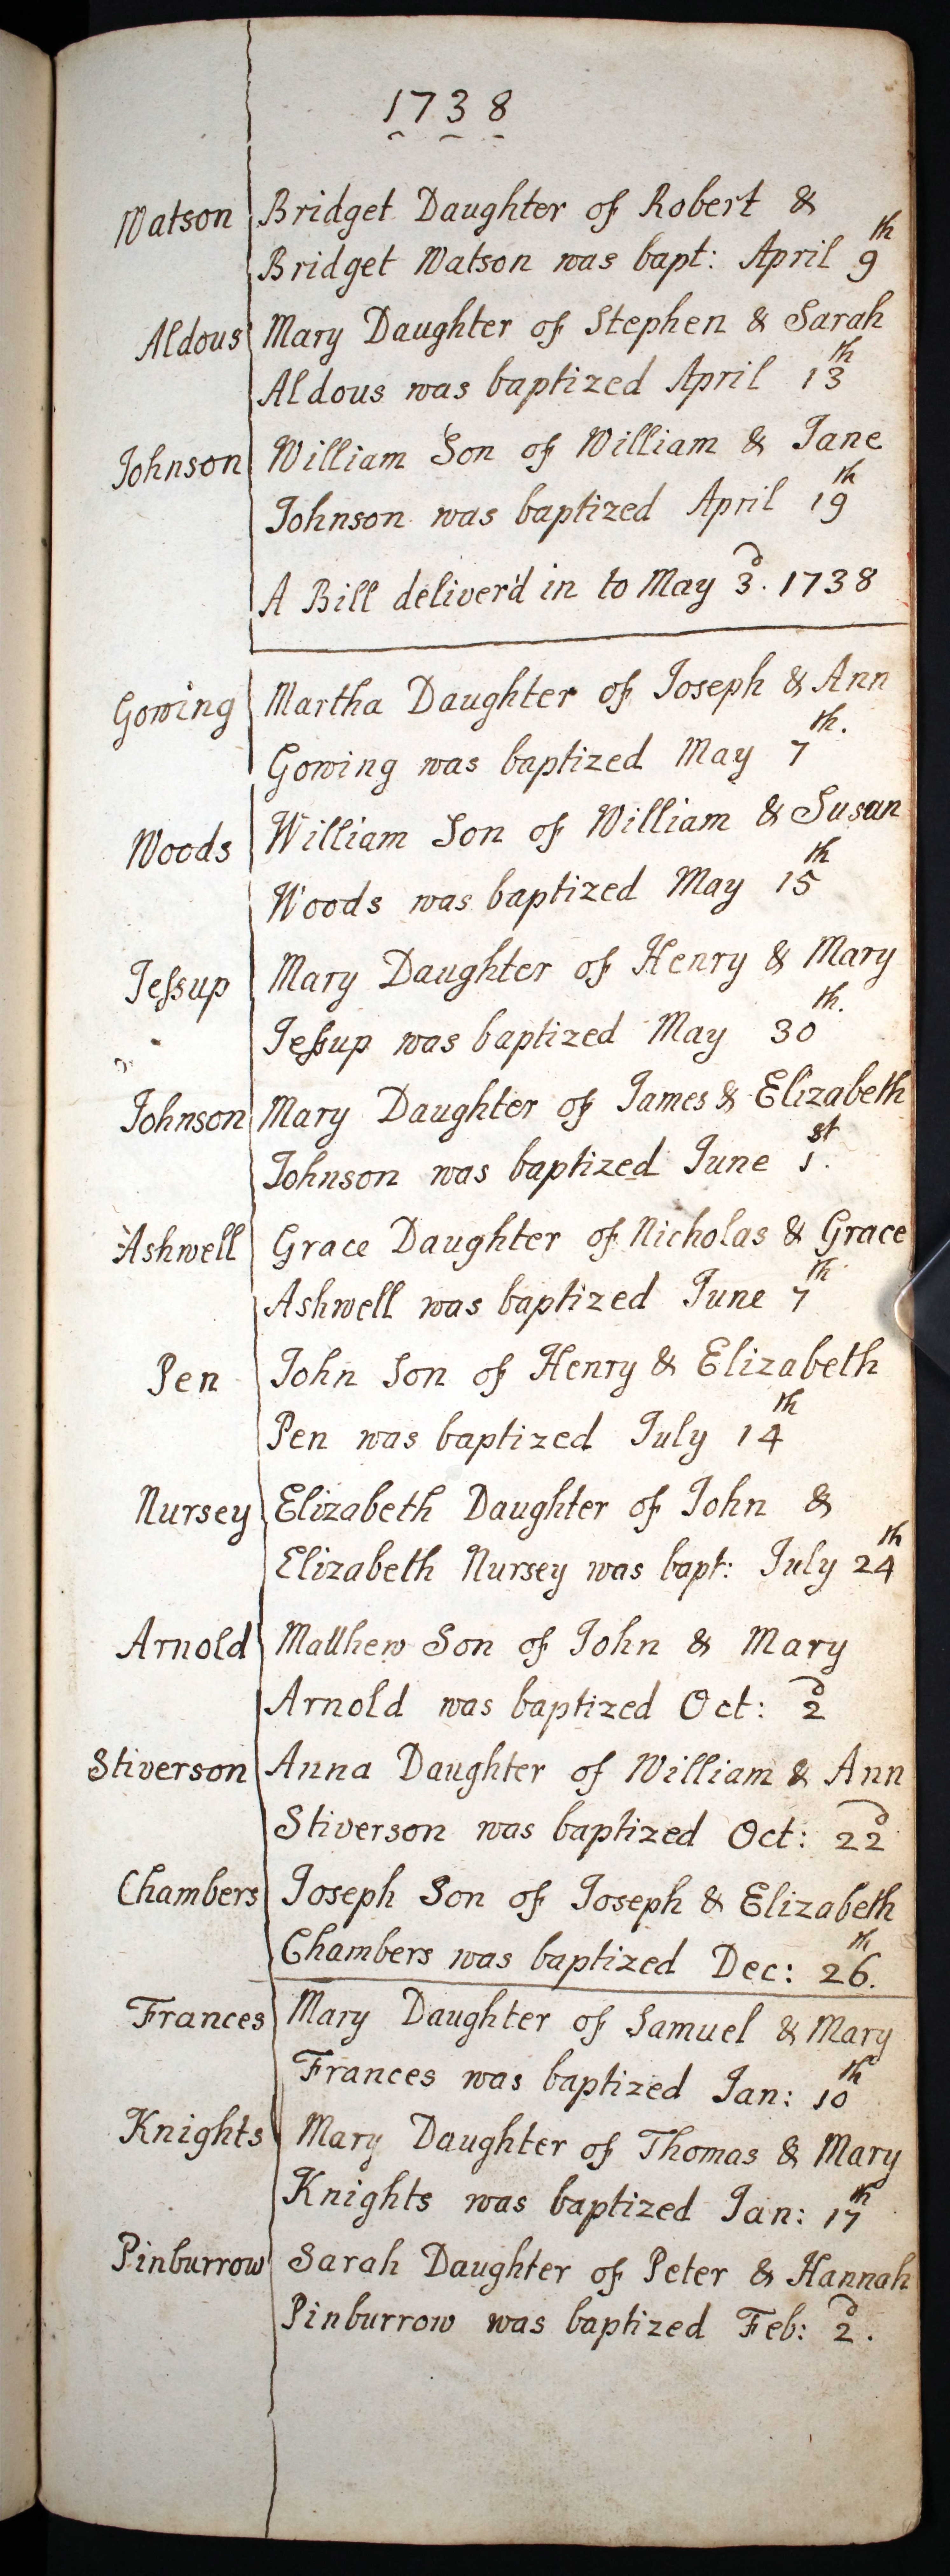 1738
Watson Bridget Daughter of Robert &
Bridget Watson was bapt: April 9th
Aldous Mary Daughter of Stephen & Sarah
Aldous was baptized April 13th
Johnson William Son of William & Jane
Johnson was baptized April 19th
A Bill deliver'd in to May 3d. 1738
Gowing Martha Daughter of Joseph & Ann
Gowing was baptized May 7th.
Woods William Son of William & Susan
Woods was baptized May 15th
Jeſsup Mary Daughter of Henry & Mary
Jeſsup was baptized May 30th.
Johnson Mary Daughter of James & Elizabeth
Johnson was baptized June 1st.
Ashwell Grace Daughter of Nicholas & Grace
Ashwell was baptized June 7th
Pen John Son of Henry & Elizabeth
Pen was baptized July 14th
Nursey Elizabeth Daughter of John &
Elizabeth Nursey was bapt: July 24th
Arnold Matthew Son of John & Mary
Arnold was baptized Oct: 2d
Stiverson Anna Daughter of William & Ann
Stiverson was baptized Oct: 22d
Chambers Joseph Son of Joseph & Elizabeth
Chambers was baptized Dec: 26th.
Frances Mary Daughter of Samuel & Mary
Frances was baptized Jan: 10th
Knights Mary Daughter of Thomas & Mary
Knights was baptized Jan: 17th
Pinburrow Sarah Daughter of Peter & Hannah
Pinburrow was baptized Feb: 2d.